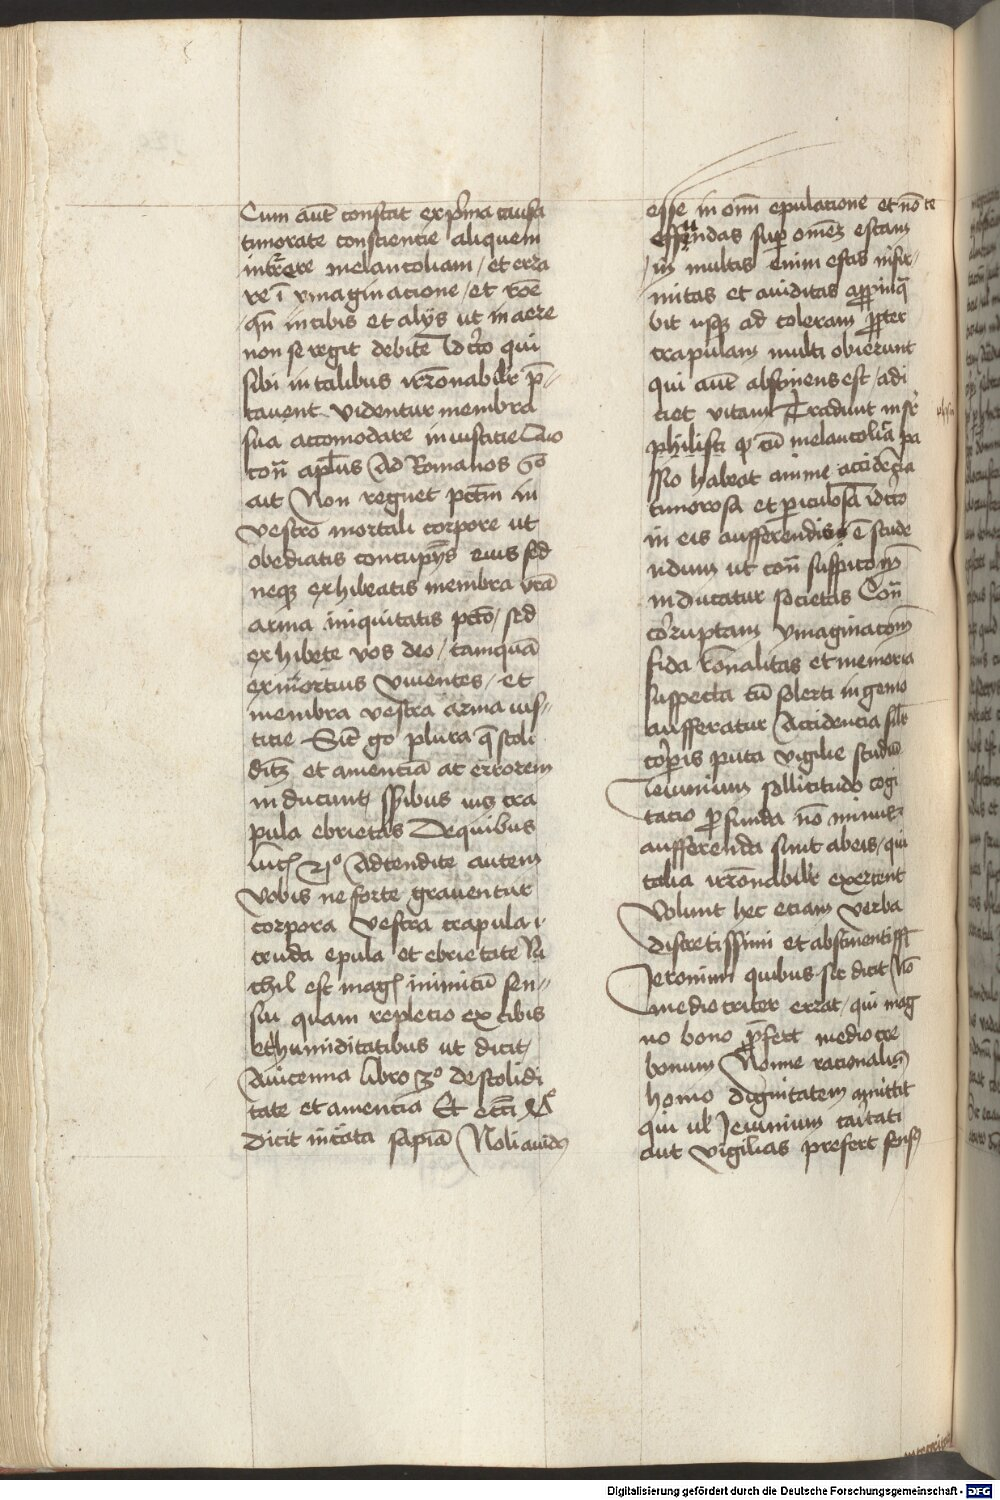 Cum aut̄ constat ex pͥma causa
timorate consciencie aliquem
incͬrere melancoliam / et erra
re ī ymaginacione / et roē
qn̄ in cibis et alijs ut in aere
non se regit debite Idcͦco qui
sibi in talibus irronabilr p̄=
cauent videntur membra
sua accomodare iniusticie Cuiꝰ
con̄ apl̄us Ad Romanos 6º
ait Non regnet pctm̄ in
vestro mortali corpore ut
obediatis concupijs̄ eius sed
neqꝫ exhibeatis membra vr̄a
arma iniquitatis pctō / sed
exhibete vos deo / tamquā
ex mortuis viuentes / et
membra vestra arma ius=
ticie Sut̄ gͦ plura q̄ stoli
ditꝫ et amenciā ac errorem
inducunt sensibus
pula ebrietas De quibus
luc̄ 21º Adtendite autem
vobis ne forte grauentur
corpora vestra crapula i
cruda epula et ebrietate Ni
chil est magꝭ inimicū sen=
sui quam replecio ex cibis
et humiditatibus ut dicit
Auicenna libro 3º de stolidi
tate et amencia Et ecc̄i
dicit intͣcta sapiā Noli auidꝰ
esse in omī epulacione et nō te
effundas supͣ omēꝫ escam
in multis enim escis infir=
mitas et auiditas appͦpinq̄
bit usqꝫ ad coleram ꝓpter
crapulam multi obierunt
qui aut̄ abstinens est / adi
ciet vitam Tradunt insͬ
philisci qꝫ cū melancolīa pa
ssio habeat anime accidēcia
timorosa et periculosā idcͦco
in eis aufferendis ē stude
ndum ut con̄ suspicoīm
inducatur societas Con̄
corruptam ymaginacoīm
fida ronalitas et memoria
suspecta cū solerti ingenio
aufferatur Accidencia silr
corꝑis puta vigilie studiū
Ieiunium sollicitudo cogi
tacio ꝓfunda nō minus
aufferenda sunt ab eis / qui
talia irronabilr exercent
Volunt hec eciam verba
discretissimi et abstinentissī
Jeronimi quibus sic dicit Nō
mediocriter errat / qui mag
no bono p̄fert mediocre
bonum Nonne racionalis
homo dignitatem amittit
qui ul Ieiunium caritati
aut vigilias prefert sensꝰ